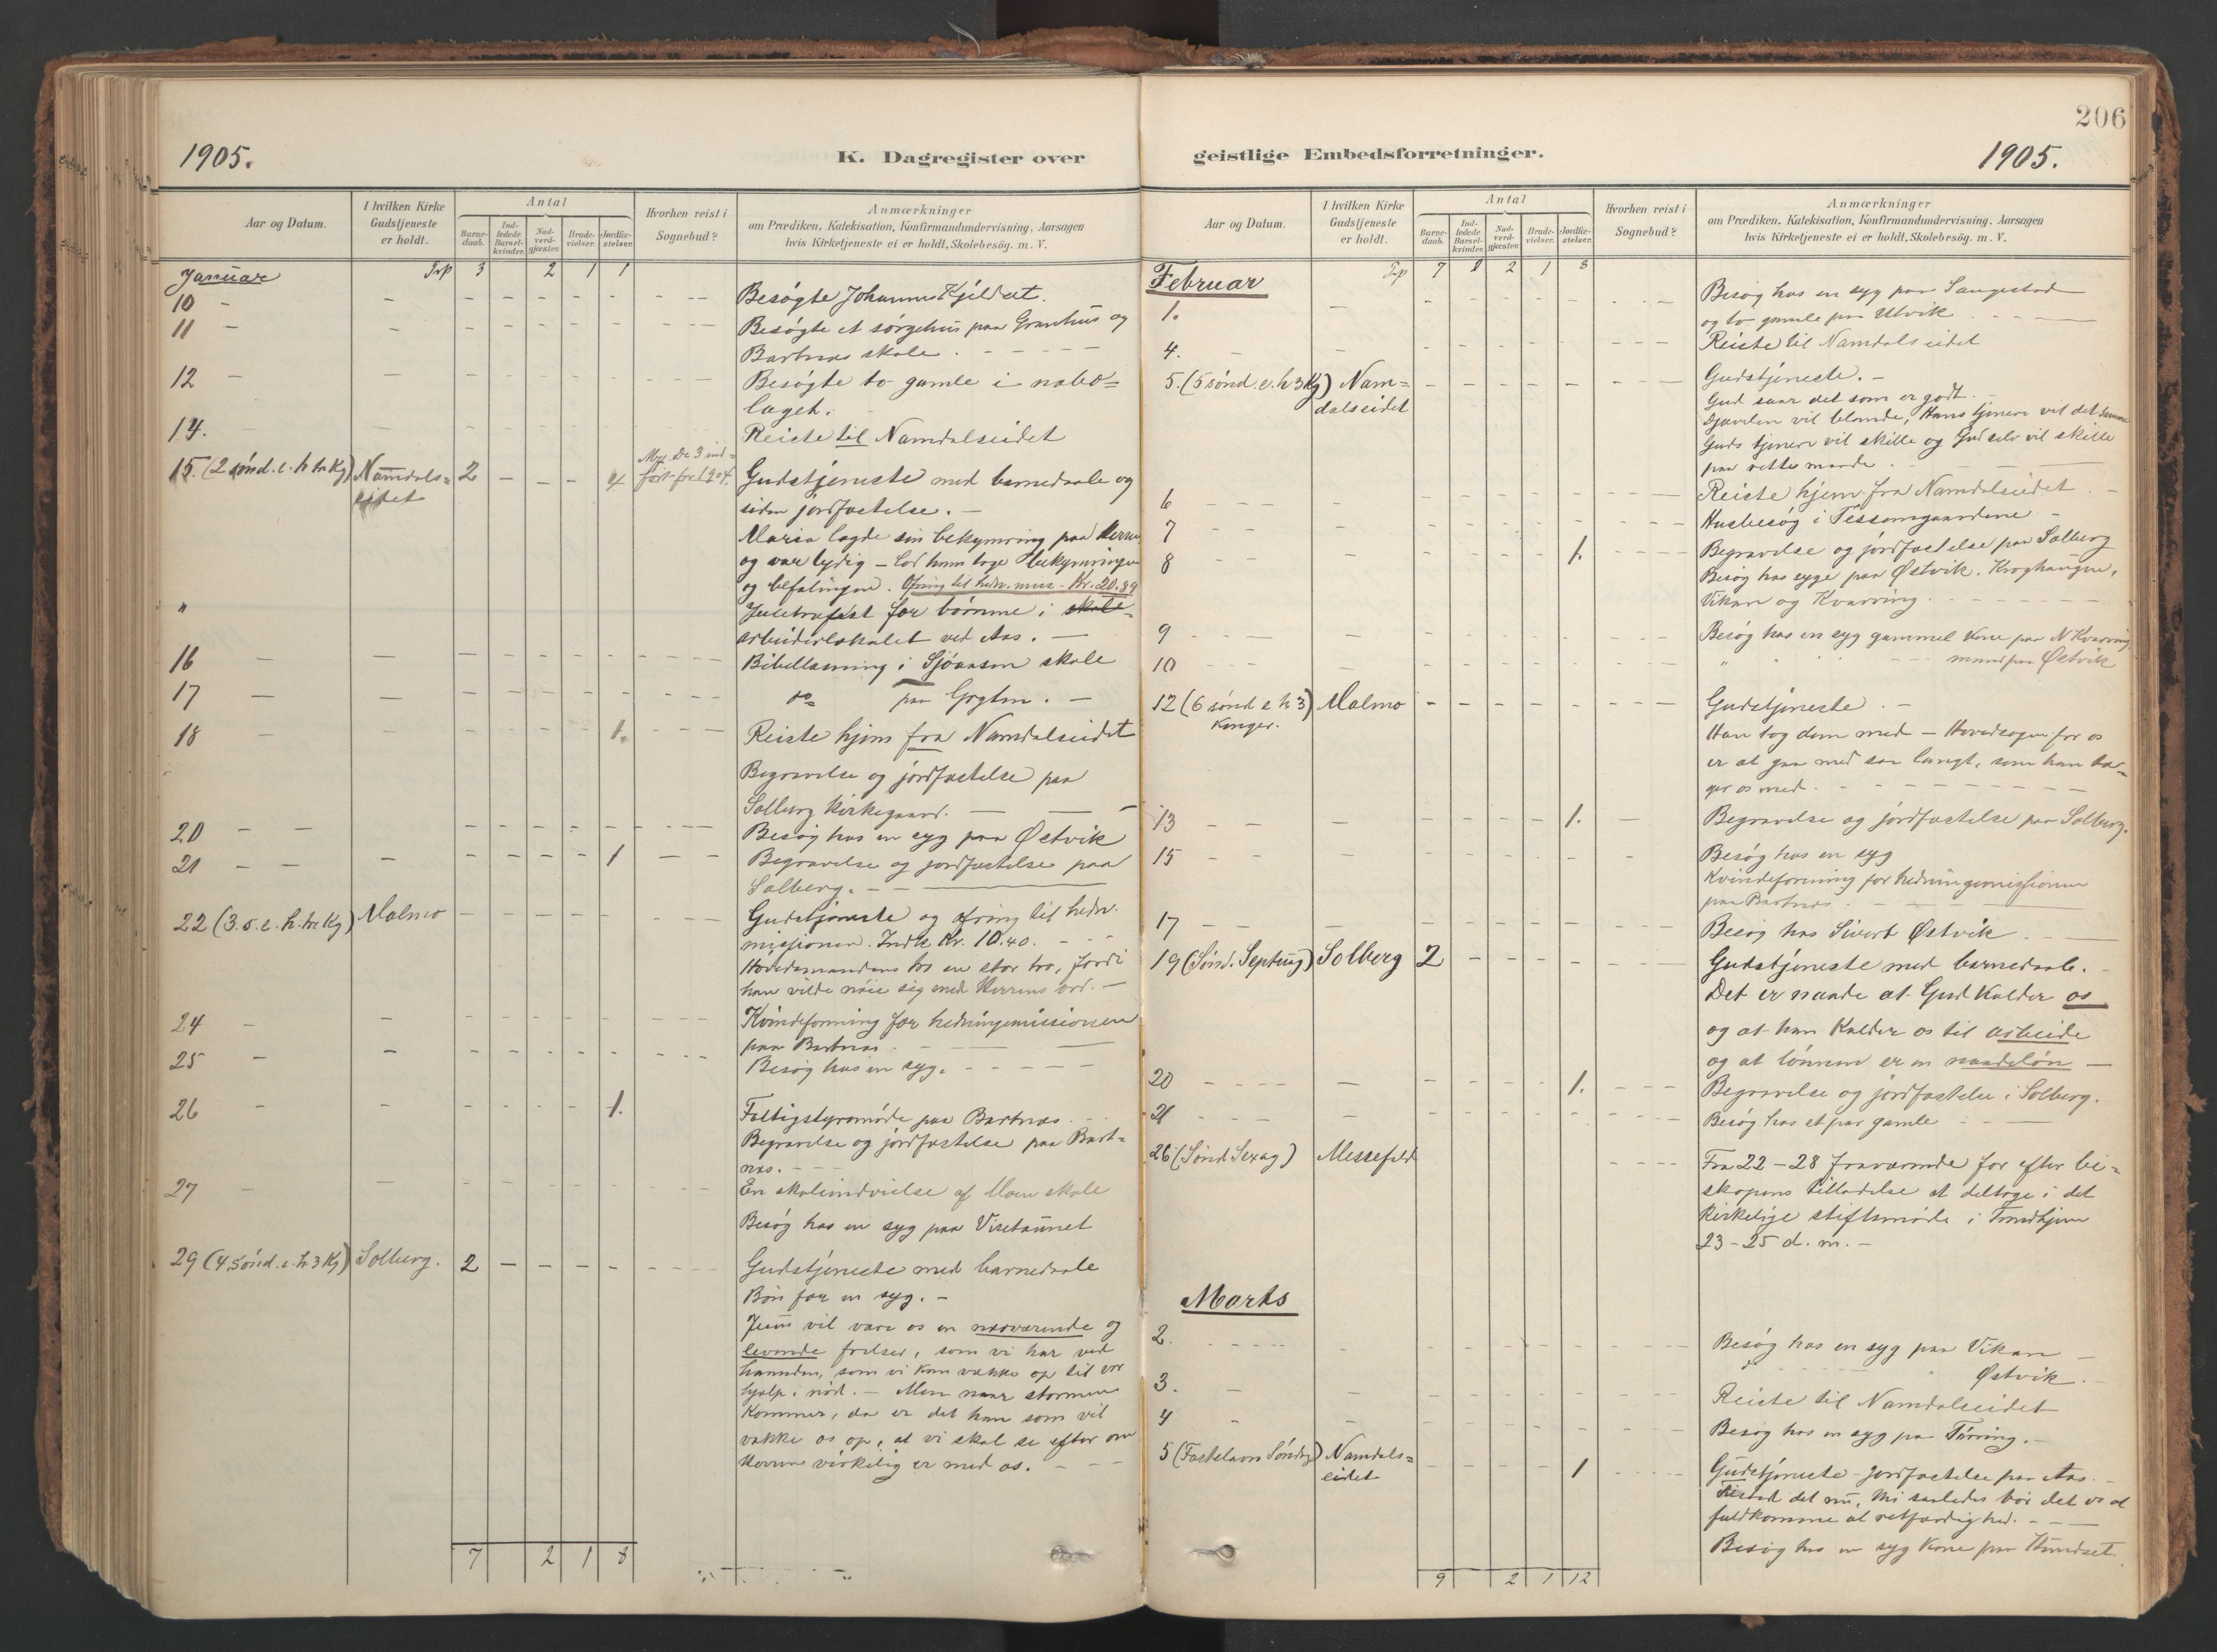 206
1905.
K. Dagregister over
geistlige Embedsforretninger.
1905.
Aar og Datum.
I hvilken Kirke Gudstjeneste er holdt.
Antal
Barne-daab.
Ind-ledede Barsel-kvinder.
Nad-verd-gjæster.
Brude-vielser.
Jordfæ-stelser.
Hvorhen reist i Sognebud?
Anmærkninger
om Prædiken, Katekisation, Konfirmandundervisning, Aarsagen
hvis Kirketjeneste ei er holdt, Skolebesøg. m. V.
Januar Trp 3 2 1 1
10 - Besøgte Johannes Kjeldset.
11 - Besøgte et sørgehus paa Granhus og
Bartnes skole.
12 - Besøgte to gamle i nabo=
laget.
14. Reiste til Namdalseidet
15. (2 sønd. e. h. tr. Kg) Namdals=eidet 2 - - - 4 De 3 ind=ført for 1904. Gudstjeneste med barnedaab og
siden jordfæstelse. -
Maria lagde sin bekymring paa Herren
og var lydig - lod ham tage bekymringen
og befalingen. Ofring til hedn. miss - Kr. 20.89
" Juletræfest for børnene i skole
arbeiderlokalet ved Aas. -
16 - Bibellæsning i Sjøaasen skole
17 - do paa
18 - 1. Reiste hjem fra Namdalseidet
Begravelse og jordfæstelse paa
Solberg kirkegaard.
20 - - Besøg hos en syg paa Østvik
21 - - 1 Begravelse og jordfæstelse paa
Solberg. -
22 (3. s. e. h. tr. Kg) Malmo Gudstjeneste og ofring til hedn.
missionen. Indk Kr. 10.40.
Høvedsmandens tro en stor tro, fordi
han vilde nøie sig med Herrens ord. -
24 - Kvindeforening for hedningemissionen
paa Bartnes
25 - Besøg hos en syg.
26 - 1. Fattigstyremøde paa Bartnes
Begravelse og jordfæstelse paa Bart=
nes. -
27 - En skoleindvielse af Moen skole
Besøg hos en syg paa
29 (4 sønd. e. h 3 Kg) Solberg. 2 - - - - Gudstjeneste med barnedaab
Bøn for en syg. -
Jesus vil være os en nærværende og
levende frelser, som vi har ved
haanden, som vi kan vække op til vor
hjælp i nød. - Men naar stormene
kommer, da er det han som vil
vække os op, at vi skal se efter om
Herren virkelig er med os. -
7 2 1 8
Aar og Datum.
I hvilken Kirke Gudstjeneste er holdt.
Antal
Barne-daab.
Ind-ledede Barsel-kvinder.
Nad-verd-gjæster.
Brude-vielser.
Jordfæ-stelser.
Hvorhen reist i Sognebud?
Anmærkninger
om Prædiken, Katekisation, Konfirmandundervisning, Aarsagen
hvis Kirketjeneste ei er holdt, Skolebesøg. m. V.
Februar Trp 7 2 1 8
1. Besøg hos en syg paa
og to gamle paa Utvik
4. Reiste til Namdalseidet
5. (5 sønd. e. h 3 Kg) Nam=dalseidet Gudstjeneste. -
Gud saar det som er godt.
Djævelen vil blande, Hans tjenere vil det samme
Guds tjenere vil skille og Gud selv vil skille
paa rette maade.
6 Reiste hjem fra Namdalseidet
7 Husbesøg i Tessemgaardene
8 1. Begravelse og jordfæstelse paa Solberg
Besøg hos syge paa Østvik, Kroghaugen,
Vikan og Kvarving
9 Besøg hos en syg gammel kone paa N Kvarving
10 " mand paa Østvik
12 (6 sønd e h 3 Konger.) Malmo Gudstjeneste. -
Han tog dem med - Hovedsagen for os
er at gaa med saa langt, som han ta=
ger os med.
13 1. Begravelse og jordfæstelse paa Solberg.
15 Besøg hos en syg
Kvindeforening for hedningemissionen
paa Bartnes
17 Besøg hos Sivert Østvik
19 (Sønd. Septuag) Solberg 2 Gudstjeneste med barnedaab.
Det er naade at Gud kalder os
og at han kalder os til arbeide
og at lønnen er en naadeløn -
20 1. Begravelse og jordfæstelse i Solberg.
21 Besøg hos et par gamle
26 (Sønd Sexag) Messefald Fra 22 - 28 fraværende for efter bi=
skopens tilladelse at deltage i det
kirkelige stiftsmøde i Trondhjem
23 - 25 d. m. -
Marts
2. Besøg hos en syg paa Vikan
Østvik. -
3. Reiste til Namdalseidet
4 Besøg hos en syg paa Tørring. -
5 (Fastelavns Søndag) Namdals=eidet 1 Gudstjeneste - Jordfæstelse paa Aas. -
Tilsted det nu, thi saaledes bør det os at
fuldkomme al retfærdighed. -
Besøg hos en syg kone paa
9 2 1 12